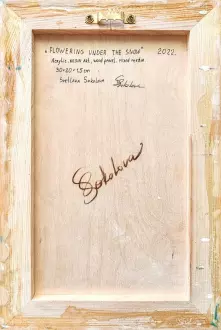 „FLOWERING UNDER THE SNOW" 2022.
Acrylic, resin art, wood panel, mixed media
30×20×1,5 cm
Svetlana Sokolova Sokolova
Sokolova